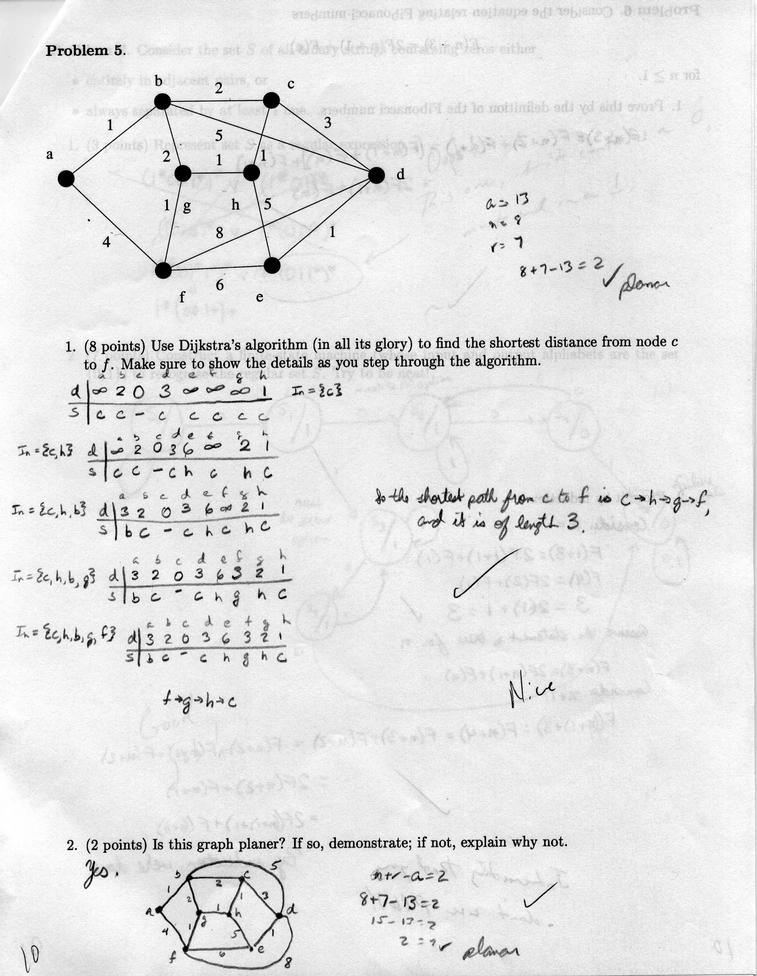 Problem 5.
b 2 c
1 5 3
a 2 1 1 d
1 g h 5
4 8 1
6
f e
a = 13
n = 8
r = 7
8+7-13 = 2 ✓ planar
1. (8 points) Use Dijkstra's algorithm (in all its glory) to find the shortest distance from node c
to f. Make sure to show the details as you step through the algorithm.
a b c d e f g h
d | ∞ 2 0 3 ∞ ∞ ∞ 1 In = {c}
s | c c - c c c c c
a b c d e f g h
In = {c,h} d | ∞ 2 0 3 6 ∞ 2 1
s | c c - c h c h c
a b c d e f g h
In = {c,h,b} d | 3 2 0 3 6 ∞ 2 1
s | b c - c h c h c
So the shortest path from c to f is c→h→g→f,
and it is of length 3.
a b c d e f g h
In = {c,h,b,g} d | 3 2 0 3 6 3 2 1
s | b c - c h g h c
a b c d e f g h
In = {c,h,b,g,f} d | 3 2 0 3 6 3 2 1
s | b c - c h g h c
f→g→h→c
Nice
2. (2 points) Is this graph planer? If so, demonstrate; if not, explain why not.
Yes.
b 2 c 5
1 2 1 3
a g 1 h d
4 1 5 1
f 6 e 8
n+r-a=2
8+7-13=2
15-13=2
2=2 ✓ planar
10